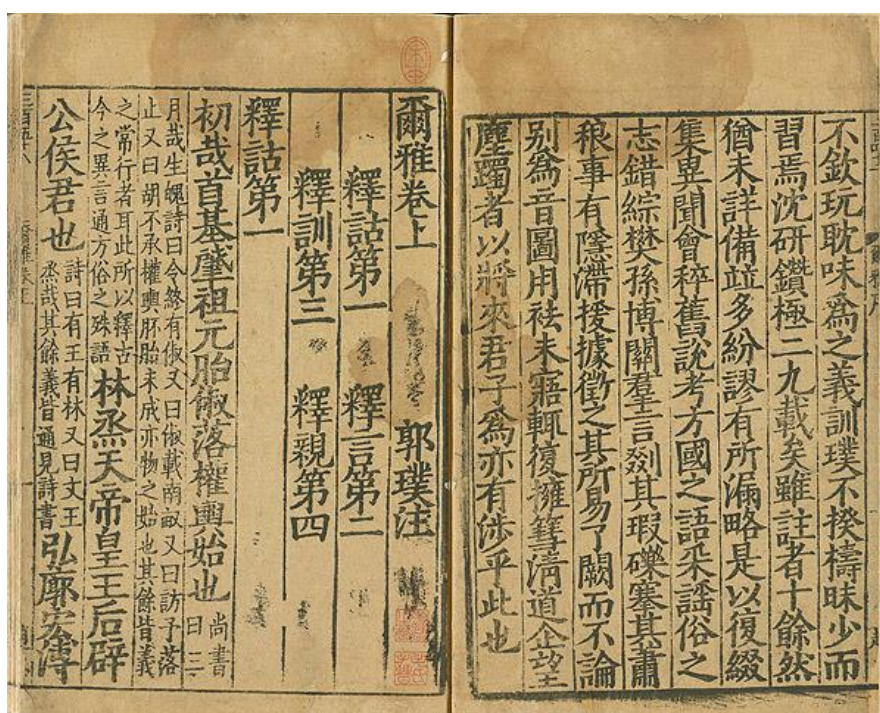 不欽玩耽味爲之義訓璞不揆檮昧少而
習焉沈研鑽極二九載矣雖註者十餘然
猶未詳備竝多紛謬有所漏略是以復綴
集異聞會稡舊說考方國之語采謠俗之
志錯綜樊孫博關羣言剟其瑕礫搴其蕭
稂事有隱滯援據徵之其所易了闕而不論
別爲音圖用袪未寤輒復擁篲清道企望
塵躅者以將來君子爲亦有涉乎此也
爾雅卷上 郭璞注
釋詁第一 釋言第二
釋訓第三 釋親第四
釋詁第一
初哉首基肇祖元胎俶落權輿始也 尚書曰三
月哉生魄詩曰令終有俶又曰俶載南畝又曰訪予落
止又曰胡不承權輿胚胎未成亦物之始也其餘皆義
之常行者耳此所以釋古
今之異言通方俗之殊語 林烝天帝皇王后辟
公侯君也 詩曰有王有林又曰文王
烝哉其餘義皆通見詩書 弘廓宏溥